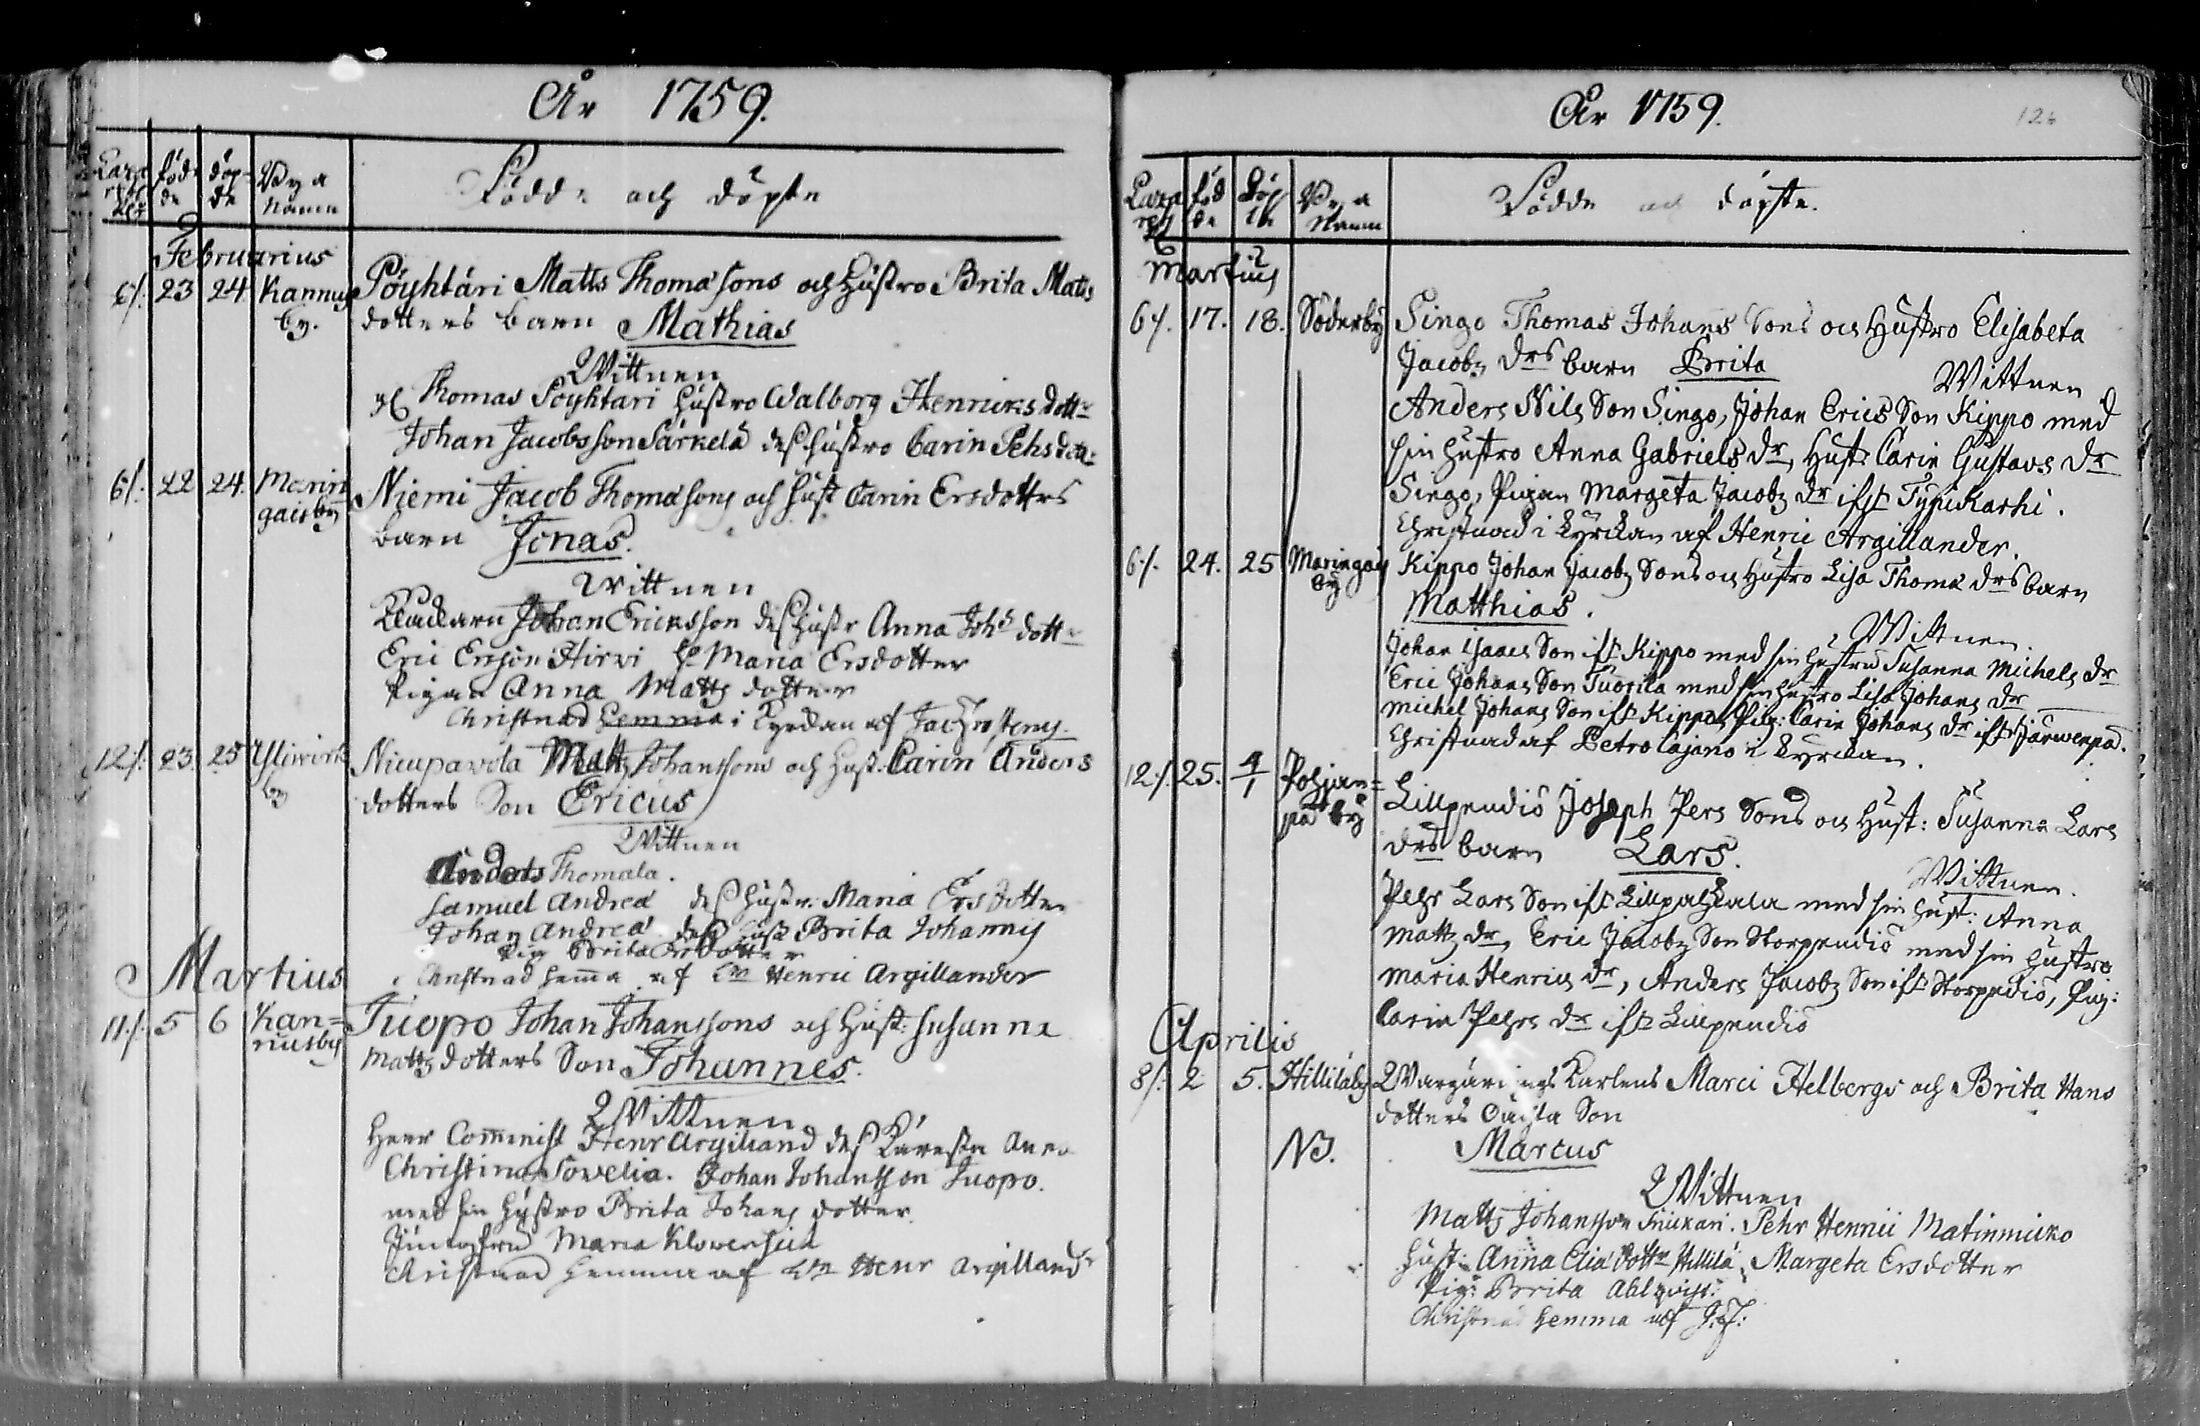 År 1759.
föd-
de
döp-
te
Bya
Namn
Födde och döpte
Februarius
6/. 23 24 Kannus
by.
Pöyhtäri Matts Thomæsons och Hustro Brita Matts
dotters barn Mathias
Wittnen
Thomas Pöyhtäri hustro Walborg Henricks dottr
Johan Jacobsson Särkelä dess hustro Carin Pehrsdott:
6/. 22 24 Marin
gais by
Niemi Jacob Thomæsons och Hust Carin Ersdotters
barn Jonas.
Wittnen
Klåckarn Johan Ericksson dess hustr Anna Johs dottr
Eric Ersson Hirvi H. Maria Ersdotter
Pigan Anna Matts dotter
Christnad hemma i Kyrckan af
12/. 23. 25 Ylivirk
by
Nicupavola Matts Johanssons och Hust. Carin Anders
dotters Son Ericus
Wittnen
Anders Thomala.
Samuel Andreæ dess hustr. Maria Ersdotter
Johan Andreæ dess hust Brita Johannis
Pig Brita Ersdotter
Christnad hema af Henric Argillander
Martius
11/. 5 6 Kan-
nusby
Tuopo Johan Johanssons och Hust: Susanna
Matts dotters Son Johannes.
Wittnen
Herr Comminist Henr Argilland dess Käresta Anna
Christina Sovelia. Johan Johansson Tuopo.
med sin hustro Brita Johans dotter
Jungfru Maria
Christnad hemma af Henr Argillandr
År 1759.
126
föd
de
Döp
te
Bya
Namn
Födde och döpte.
Martius
6/. 17. 18. Söderby
Singo Thomas Johans Sons och Hustro Elisabeta
Jacobs drs barn Brita
Wittnen
Anders Nils Son Singo, Johan Erics Son Kippo med
sin Hustro Anna Gabriels dr, Hustr Carin Gustavs dr
Singo, Pigan Margeta Jacobs dr ifr Typukarhi.
Christnad i Kyrckan af Henric Argillander.
6/. 24. 25 Maringais
by
Kippo Johan Jacobs Sons och Hustro Lisa Thomæ drs barn
Matthias.
Wittnen.
Johan Isaacs Son ifr Kippo med sin Hustru Susanna Michels dr
Eric Johans Son Tuorila med sin hustro Lisa Johans dr
Michel Johans Son ifr Kippo, Pig: Carin Johans dr ifr Järwenpä.
Christnad af Petro Cajano i Kyrckan.
12/. 25. 4/1 Pohjan-
pä by
Lillpendis Joseph Pers Sons och Hust: Susanna Lars
drs barn Lars.
Wittnen.
Pehr Lars Son ifr med sin Hust: Anna
Matts dr, Eric Jacobs Son Storpendis med sin Hustro
Maria Henrics dr, Anders Jacobs Son ifr Storpendis, Pig:
Carin Pehrs dr ifr Lillpendis
Aprilis
8/. 2 5. Hilliläby
Karlens Marci Helbergs och Brita Hans
dotters Son
NB.
Marcus
Wittnen
Matts Johansson Snickari. Pehr Henrici Matinmicko
Hust: Anna Eliæ dottr Hillilä, Margeta Ersdotter
Pig: Brita Ahlqvist:
Christnad hemma af